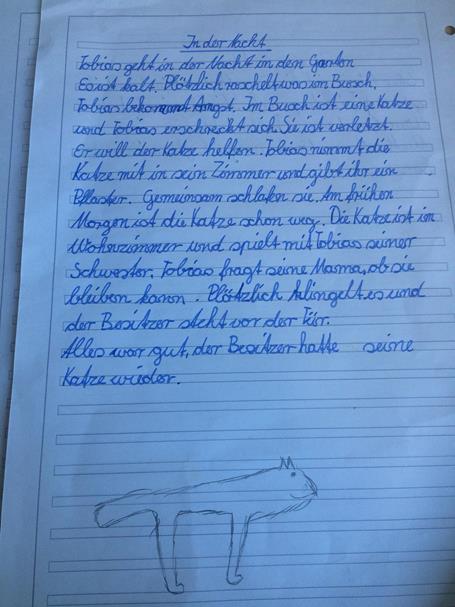 In der Nacht
Tobias geht in der Nacht in den Garten
Es ist kalt. Plötzlich raschelt was im Busch.
Tobias bekommt Angst. Im Busch ist eine Katze
und Tobias erschreckt sich. Sie ist verletzt.
Er will der Katze helfen. Tobias nimmt die
Katze mit in sein Zimmer und gibt ihr ein
Pflaster. Gemeinsam schlafen sie. Am frühen
Morgen ist die Katze schon weg. Die Katze ist im
Wohnzimmer und spielt mit Tobias seiner
Schwester. Tobias fragt seine Mama, ob sie
bleiben kann. Plötzlich klingelt es und
der Besitzer steht vor der Tür.
Alles war gut, der Besitzer hatte seine
Katze wieder.